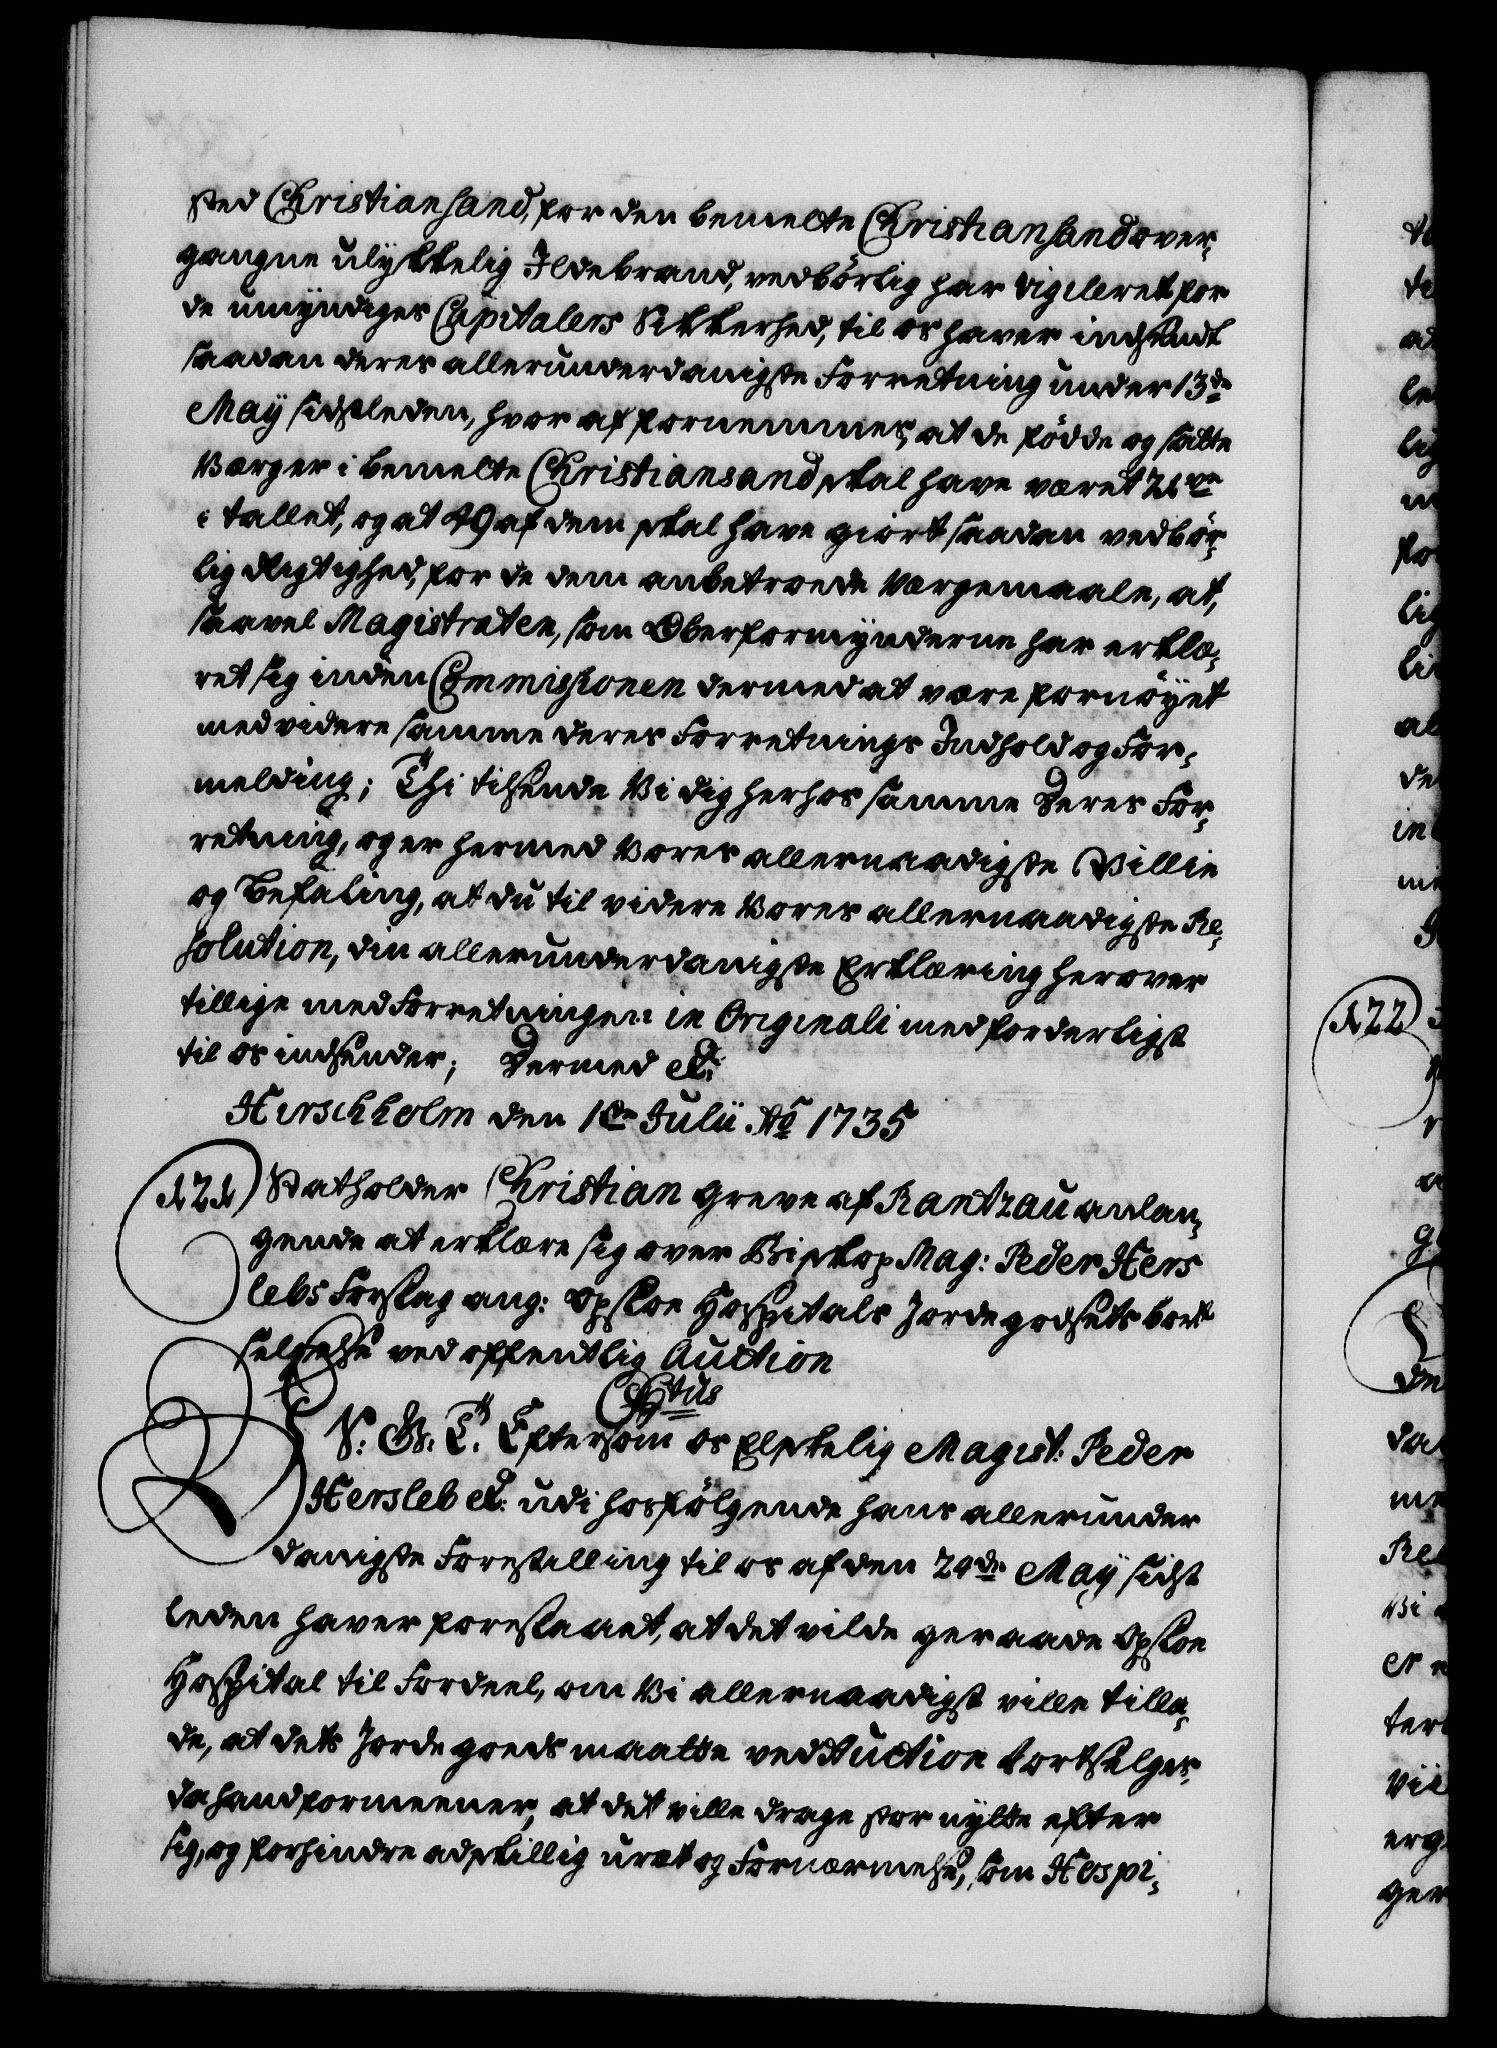 sted Christiansand, for den bemelte Christiansand over,
gangne ulykkelig Ildebrand, vedbörlig har vigileret for
de umyndiges Capitalers Sikkerhed, til os haver indsendt
saadan deres allerunderdanigste Forretning under 13de
Maÿ sidstleden, hvor af fornemmes, at de födde og satte
Værger i bemelte Christiansand skal have været
i tallet, og at 49 af dem skal have giort saadan vedbör,
lig Rigtighed, for de dem anbetroede Værgemaale, at,
saavel Magistraten, som Oberformynderne har erklæ,
ret sig inden Commissionen dermed at være fornöyet
med videre samme deres Forretnings Indhold og For,
melding; Thi tilsende Vi dig herhos samme Deres For,
retning, og er hermed Vores allernaadigste Villie
og Befaling, at du til videre Vores allernaadigste Re,
solution, din allerunderdanigste Erklæring herover
tillige med Forretningen in Originali med forderligst
til os indsender; Dermed etc:
Hirschholm den 1te Julii Ao 1735
Statholder Christian Greve af Rantzau anlan,
gende at erklære sig over Biskop Mag: Peder Hers
lebs Forslag ang: Opsloe Hospitals Jordegodsets bort
selgelse ved offentlig Auction
Chtus
V: G: T: Eftersom os Elskelig Magist: Peder
Hersleb etc: udi hosfölgende hans allerunder
danigste Forestilling til os af den 24de Maÿ sidst
leden haver forestaaet, at det vilde geraade Opsloe
Hospital til Fordeel, om Vi allernaadigst ville tilla,
de, at dets Jordegoeds maatte ved Auction bortselges,
da hand formeener, at det ville drage stor nytte efter
sig, og forhindre adskillig uret og Fornærmelse, som Hospi,